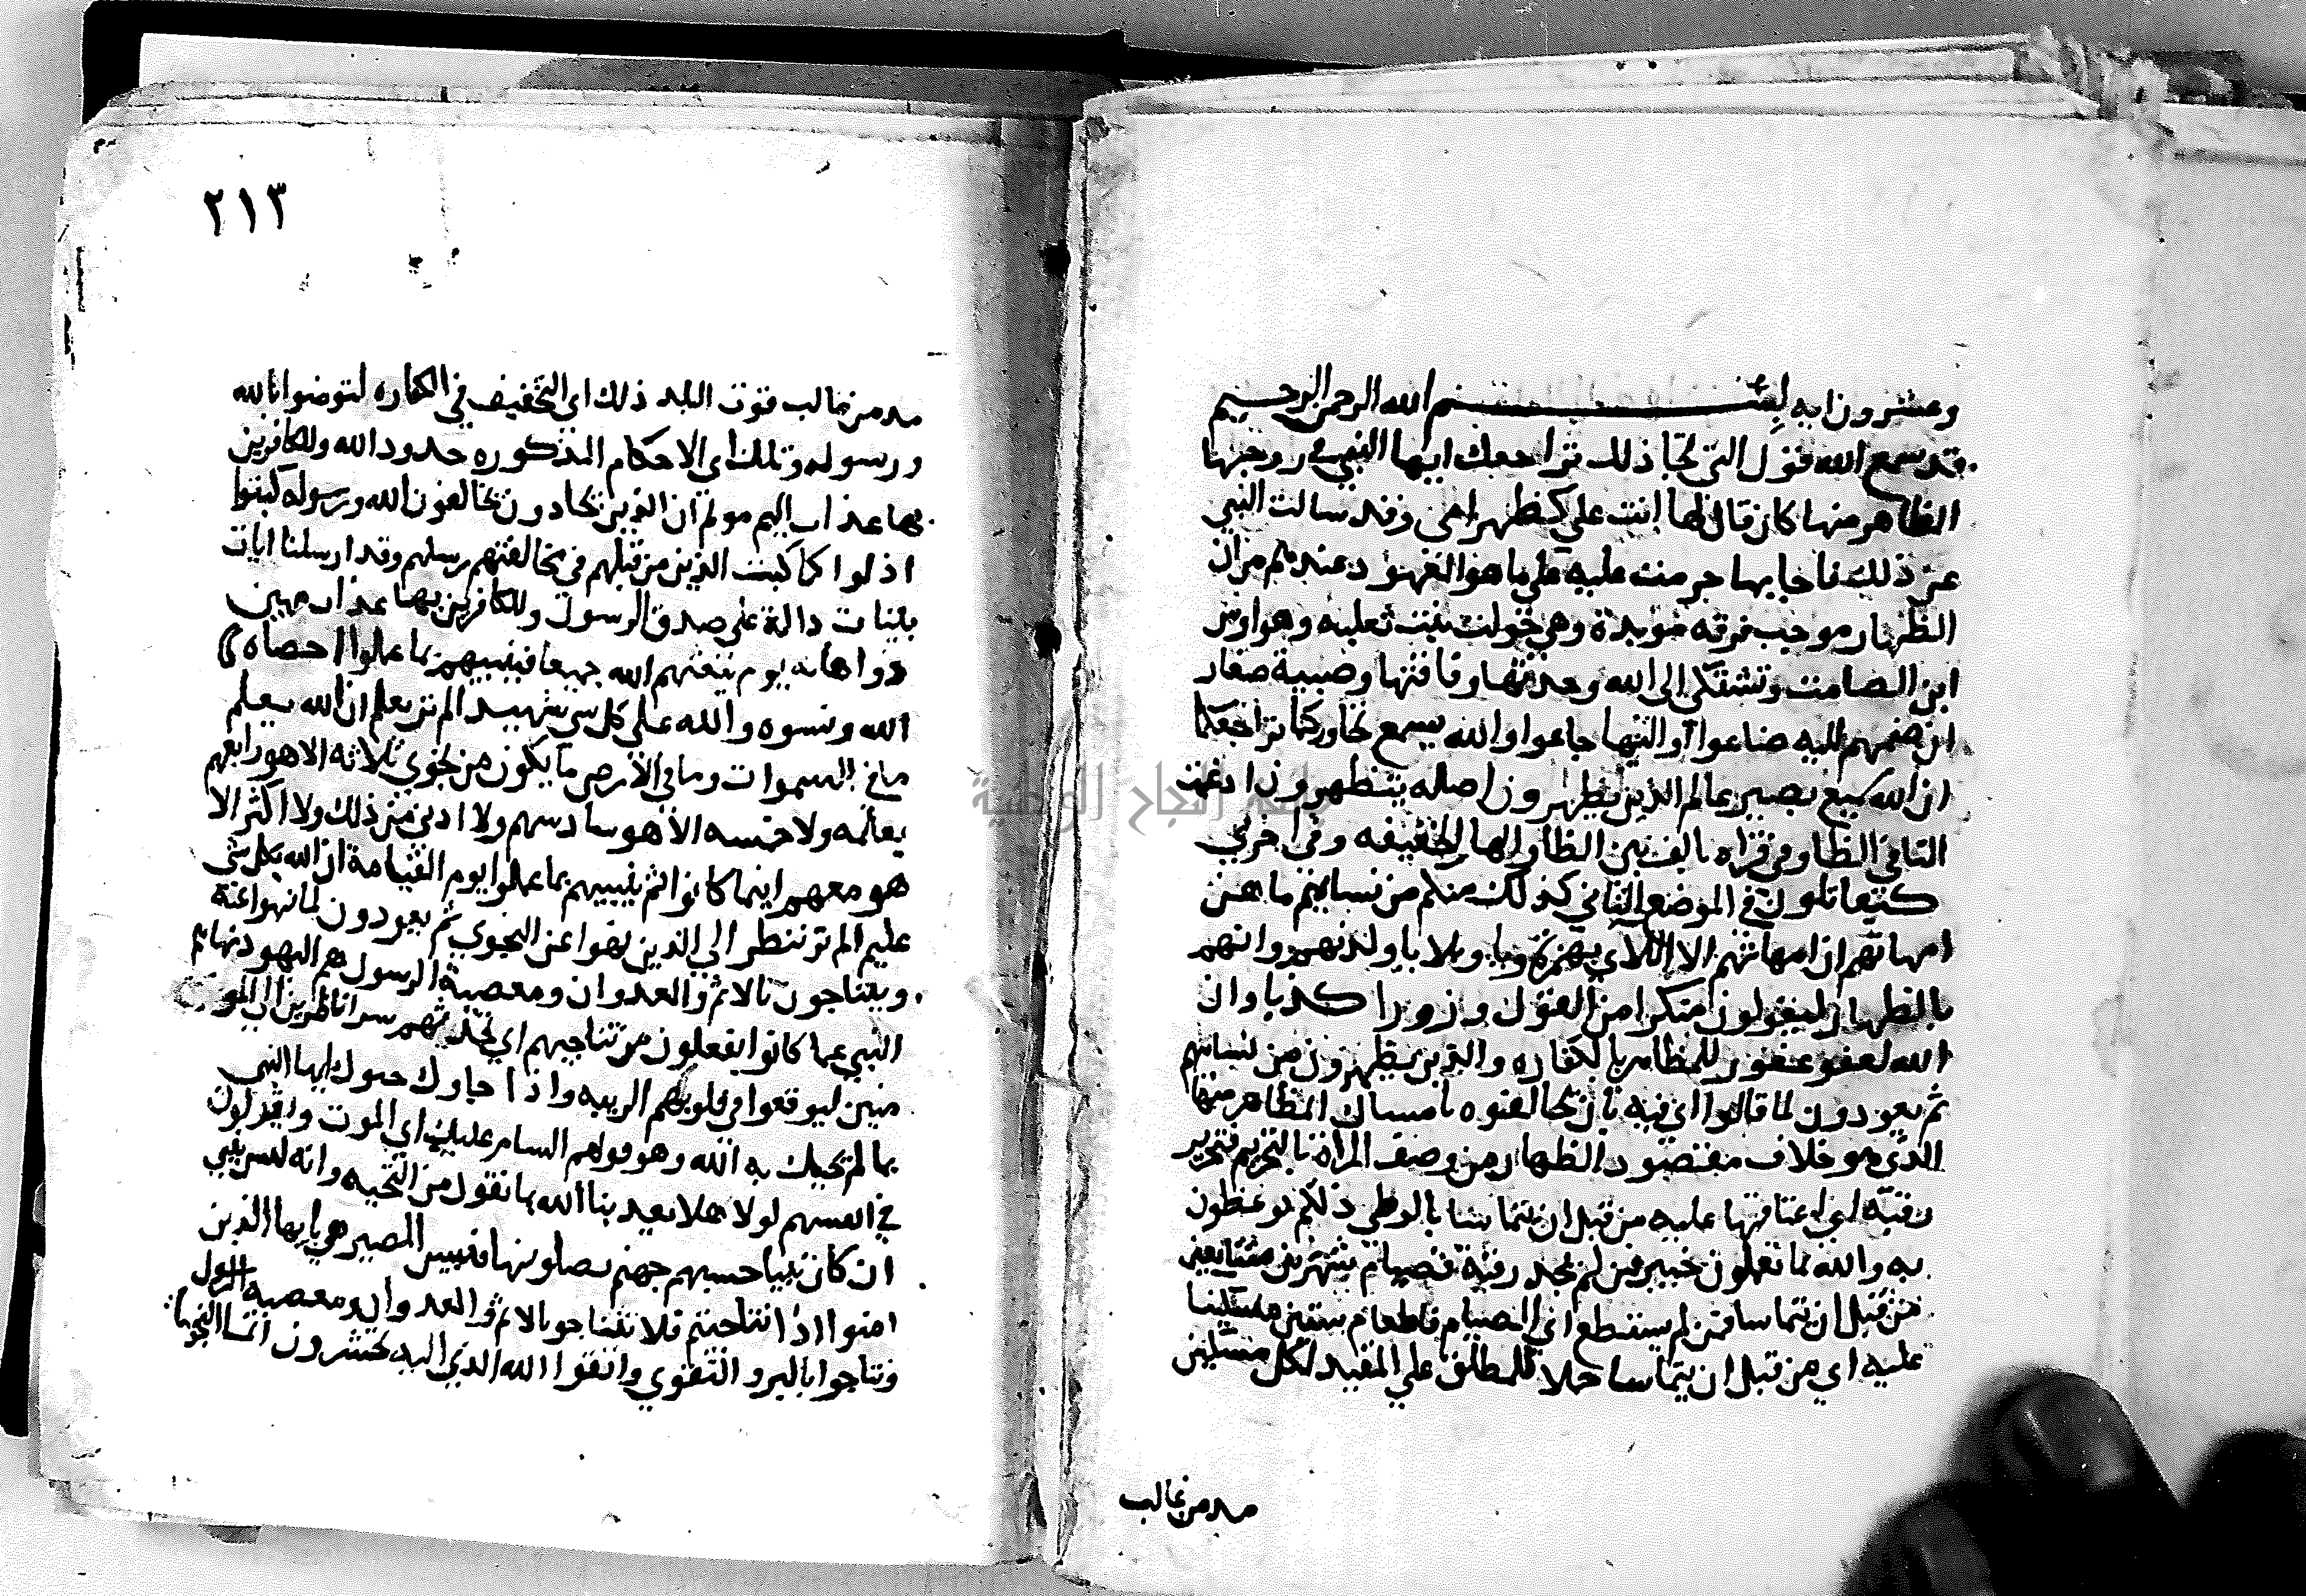 وعشرون ايه بسم الله الرحمن الرحيم
قد سمع الله قول التي تجادلك تراجعك ايها النبي في زوجها
المظاهر منها كان قال لها انت علي كظهر امي وقد سالت النبي
عن ذلك فاجابها حرمت عليه علي ما هو المعهود عندهم من ان
الظهار موجب فرقه موبدة وهي خولت بنت ثعلبه وهو اوس
ابن الصامت وتشتكي الى الله وحدتها وفاقتها وصبية صغار
ان ضمتهم اليه ضاعوا او اليها جاعوا والله يسمع تحاوركما تراجعكما
ان الله سميع بصير عالم الذين يظهرون اصله يتظهرون ادغمت
التا في الظا وفي قراه بالف بين الظا والها الخفيفه وفي اخري
كتقاتلون في الموضع الثاني كذلك منكم من نسايهم ما هن
امهاتهم ان امهاتهم الا اللاي بهمزة ويا وبلا يا ولدنهم وانهم
بالظهار ليقولون منكرا من القول وزورا كذبا وان
الله لعفو غفور للمظاهر بالكفاره والذين يظهرون من نسايهم
ثم يعودون لما قالوا اي فيه بان يخالفوه بامساك المظاهر منها
الذي هو خلاف مقصود الظهار من وصف المراه بالتحريم فتحرير
رقبه اي اعتاقها عليه من قبل ان يتماسا بالوطي ذلكم توعظون
به والله بما تعملون خبير فمن لم يجد رقبة فصيام شهرين متتابعين
من قبل ان يتماسا فمن لم يستطع اي الصيام فاطعام ستين مسكينا
عليه اي من قبل ان يتماسا حملا للمطلق علي المقيد لكل مسكين
مد من غالب
٢١٣
مد من غالب قوت البلد ذلك اي التخفيف في الكفاره لتومنوا بالله
ورسوله وتلك اي الاحكام المذكوره حدود الله وللكافرين
بها عذاب اليم مولم ان الذين يحادون يخالفون الله ورسوله كبتوا
اذلوا كما كبت الذين من قبلهم في مخالفتهم رسلهم وقد ارسلنا ايات
بينات دالة علي صدق الرسول وللكافرين بها عذاب مهين
ذو اهانه يوم يبعثهم الله جميعا فينبيهم بما عملوا احصاه
الله ونسوه والله علي كل شي شهيد الم تر يعلم ان الله يعلم
ما في السموات وما في الارض ما يكون من نجوي ثلاثه الا هو رابعهم
بعلمه ولا خمسه الا هو سادسهم ولا ادني من ذلك ولا اكثر الا
هو معهم اينما كانوا ثم ينبيهم بما عملوا يوم القيامة ان الله بكل شي
عليم الم تر تنظر الي الذين نهوا عن النجوي ثم يعودون لما نهوا عنه
ويتناجون بالاثم والعدوان ومعصية الرسول هم اليهود نهاهم
النبي عما كانوا يفعلون من تناجيهم اي تحدثهم سرا ناظرين الي المو
منين ليوقعوا في قلوبهم الريبه واذا جاوك حيوك ايها النبي
بما لم يحيك به الله وهو قولهم السام عليك اي الموت ويقولون
في انفسهم لولا هلا يعذبنا الله بما نقول من التحيه وانه ليس بنبي
ان كان نبيا حسبهم جهنم يصلونها فبيس المصير هي يايها الذين
امنوا اذا تناجيتم فلا تتناجوا بالاثم والعدوان ومعصية الرسول
وتناجوا بالبر والتقوي واتقوا الله الذي اليه تحشرون انما النجوا
جامعة النجاح الوطنية